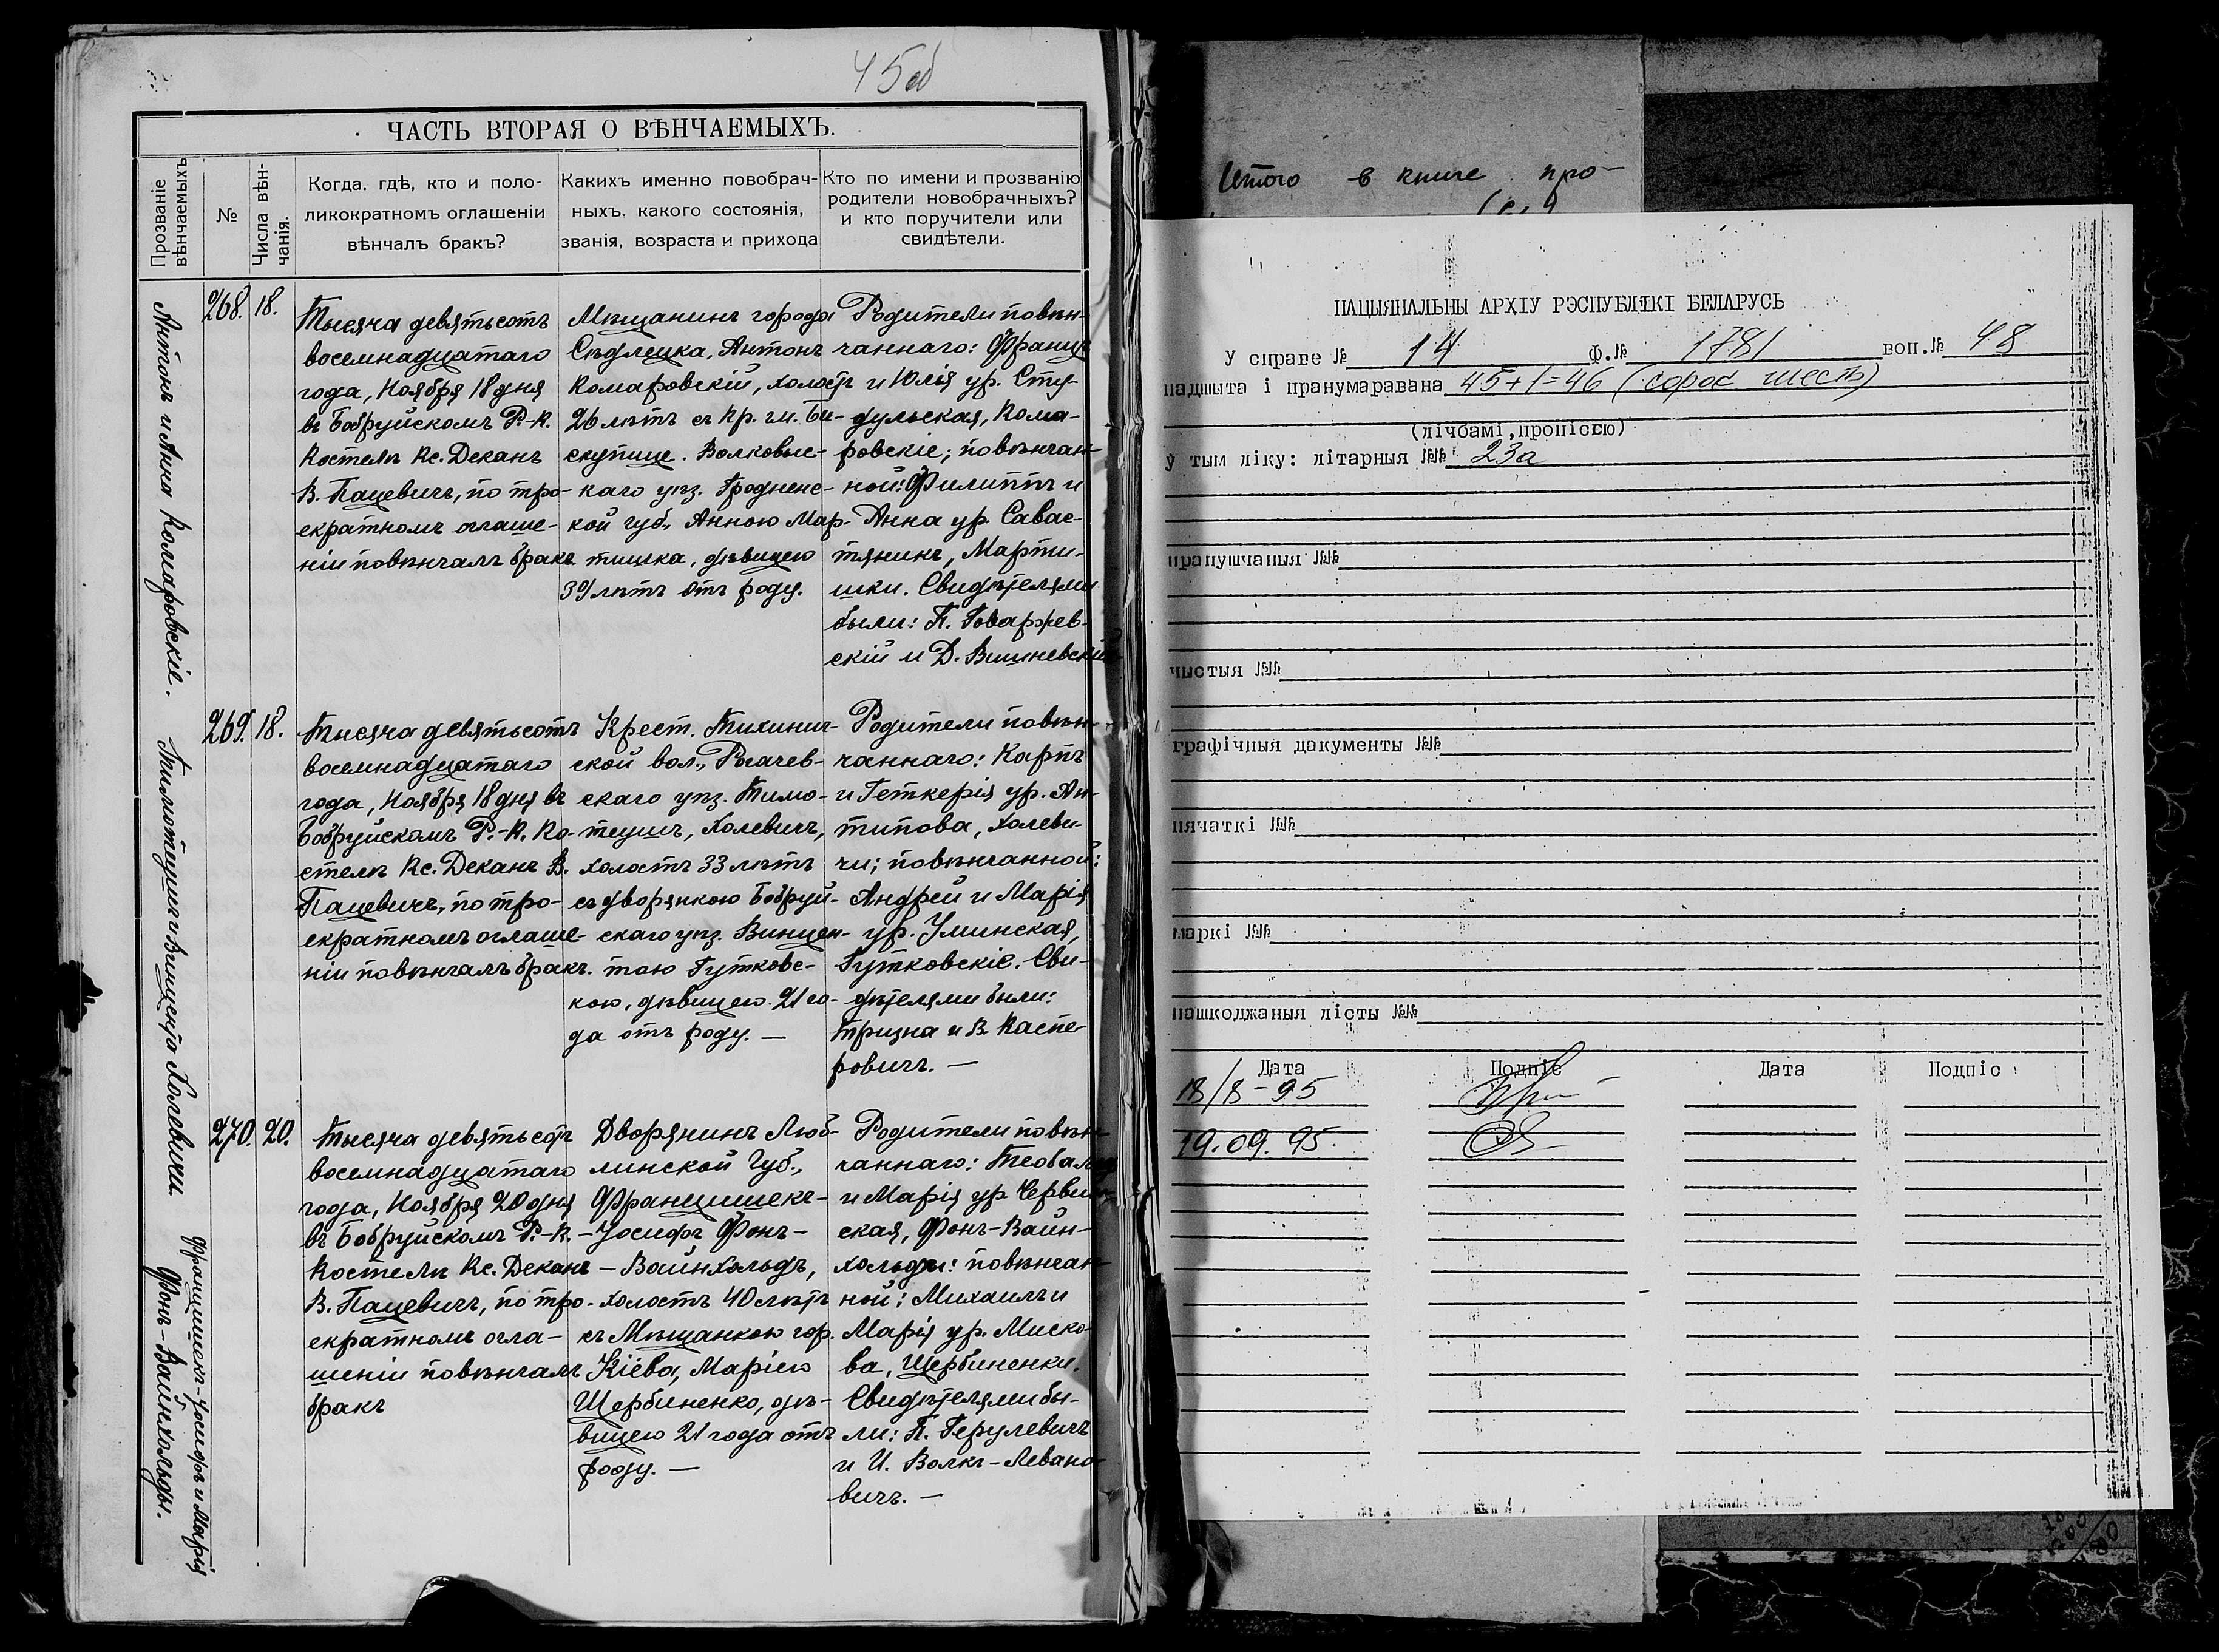 45об
ЧАСТЬ ВТОРАЯ О ВѢНЧАЕМЫХЪ.
Прозваніе вѣнчаемыхъ
№
Числа вѣн-
чанія.
Когда, гдѣ, кто и поло-
ликократномъ оглашеніи
вѣнчалъ бракъ?
Какихъ именно повобрач-
ныхъ, какого состоянія,
званія, возраста и прихода
Кто по имени и прозванію
родители новобрачныхъ?
и кто поручители или
свидѣтели.
Антонъ и Анна Комаровскіе.
268. 18.
Тысяча девятьсотъ
восемнадцатаго
года, Ноября 18 дня
въ Бобруйскомъ Р.-К.
Костелѣ Кс. Деканъ
В. Пацевичъ, по тро-
екратномъ оглаше-
ніи повѣнчалъ бракъ
Мѣщанинъ города
Сѣдлецка, Антонъ
Комаровскій, холостъ
26 лѣтъ съ Кр. гм. Би-
скупице. Волковыс-
каго уѣз. Гродненс-
кой губ., Анною Мар-
тишка, дѣвицею
39 лѣтъ отъ роду.
Родители повѣн-
чаннаго: Францъ
и Юлія ур. Сту-
дульская, Кома-
ровскіе; повѣнчан-
ной: Филиппъ и
Анна ур. Савас-
тяникъ, Марти-
шки. Свидѣтелями
были: П. Говаржев-
скій и Д. Вишневскій
Тимотеушъ и Винцента Холевичи.
269. 18.
Тысяча девятьсотъ
восемнадцатаго
года, Ноября 18 дня въ
Бобруйскомъ Р.-К. Ко-
стелѣ Кс. Деканъ В.
Пацевичъ, по тро-
екратномъ оглаше-
ніи повѣнчалъ бракъ.
Крест. Тихинич-
ской вол., Рогачев-
скаго уѣз. Тимо-
теушъ, Холевичъ,
холостъ 33 лѣтъ
съ дворянкою Бобруй-
скаго уѣз. Винцен-
тою Гутковс-
кою, дѣвицею 21 го-
да отъ роду. —
Родители повѣн-
чаннаго: Карпъ
и Геткерія ур. Ан-
типова, Холеви-
чи; повѣнчанной:
Андрей и Марія
ур. Уминская,
Гутковскіе. Сви-
дѣтелями были:
Тризна и В. Каспе-
ровичъ. —
Францишекъ-Іосифъ и Марія
Фонъ-Вайнхольды.
270. 20.
Тысяча девятьсотъ
восемнадцатаго
года, Ноября 20 дня
въ Бобруйскомъ Р.-К.
Костелѣ Кс. Деканъ
В. Пацевичъ, по тро-
екратномъ огла-
шеніи повѣнчалъ
бракъ
Дворянинъ Люб-
линской Губ.,
Францишекъ-
-Іосифъ Фонъ-
-Вайнхольдъ,
холостъ 40 лѣтъ
съ Мѣщанкою гор.
Кіева, Маріею
Щербиненко, дѣ-
вицею 21 года отъ
роду. —
Родители повѣн-
чаннаго: Теобальдъ
и Марія ур. Червин-
ская, Фонъ-Вайн-
хольды: повѣнчан-
ной: Михаилъ и
Марія ур. Миско-
ва, Щербиненки.
Свидѣтелями бы-
ли: П. Герулевичъ
и И. Волкъ-Левано-
вичъ. —
Итого в книге про-
НАЦЫЯНАЛЬНЫ АРХІУ РЭСПУБЛІКІ БЕЛАРУСЬ
У справе № 14 Ф.№ 1781 воп.№ 48
падшыта і пранумаравана 45+1=46 (сорок шесть)
(лічбамі, пропіссю)
ў тым ліку: літарныя №№ 23а
прапушчаныя №№
чыстыя №№
графічныя дакументы №№
пячаткі №№
маркі №№
пашкоджаныя лісты №№
Дата Подпіс Дата Подпіс
18/8-95
19.09.95.